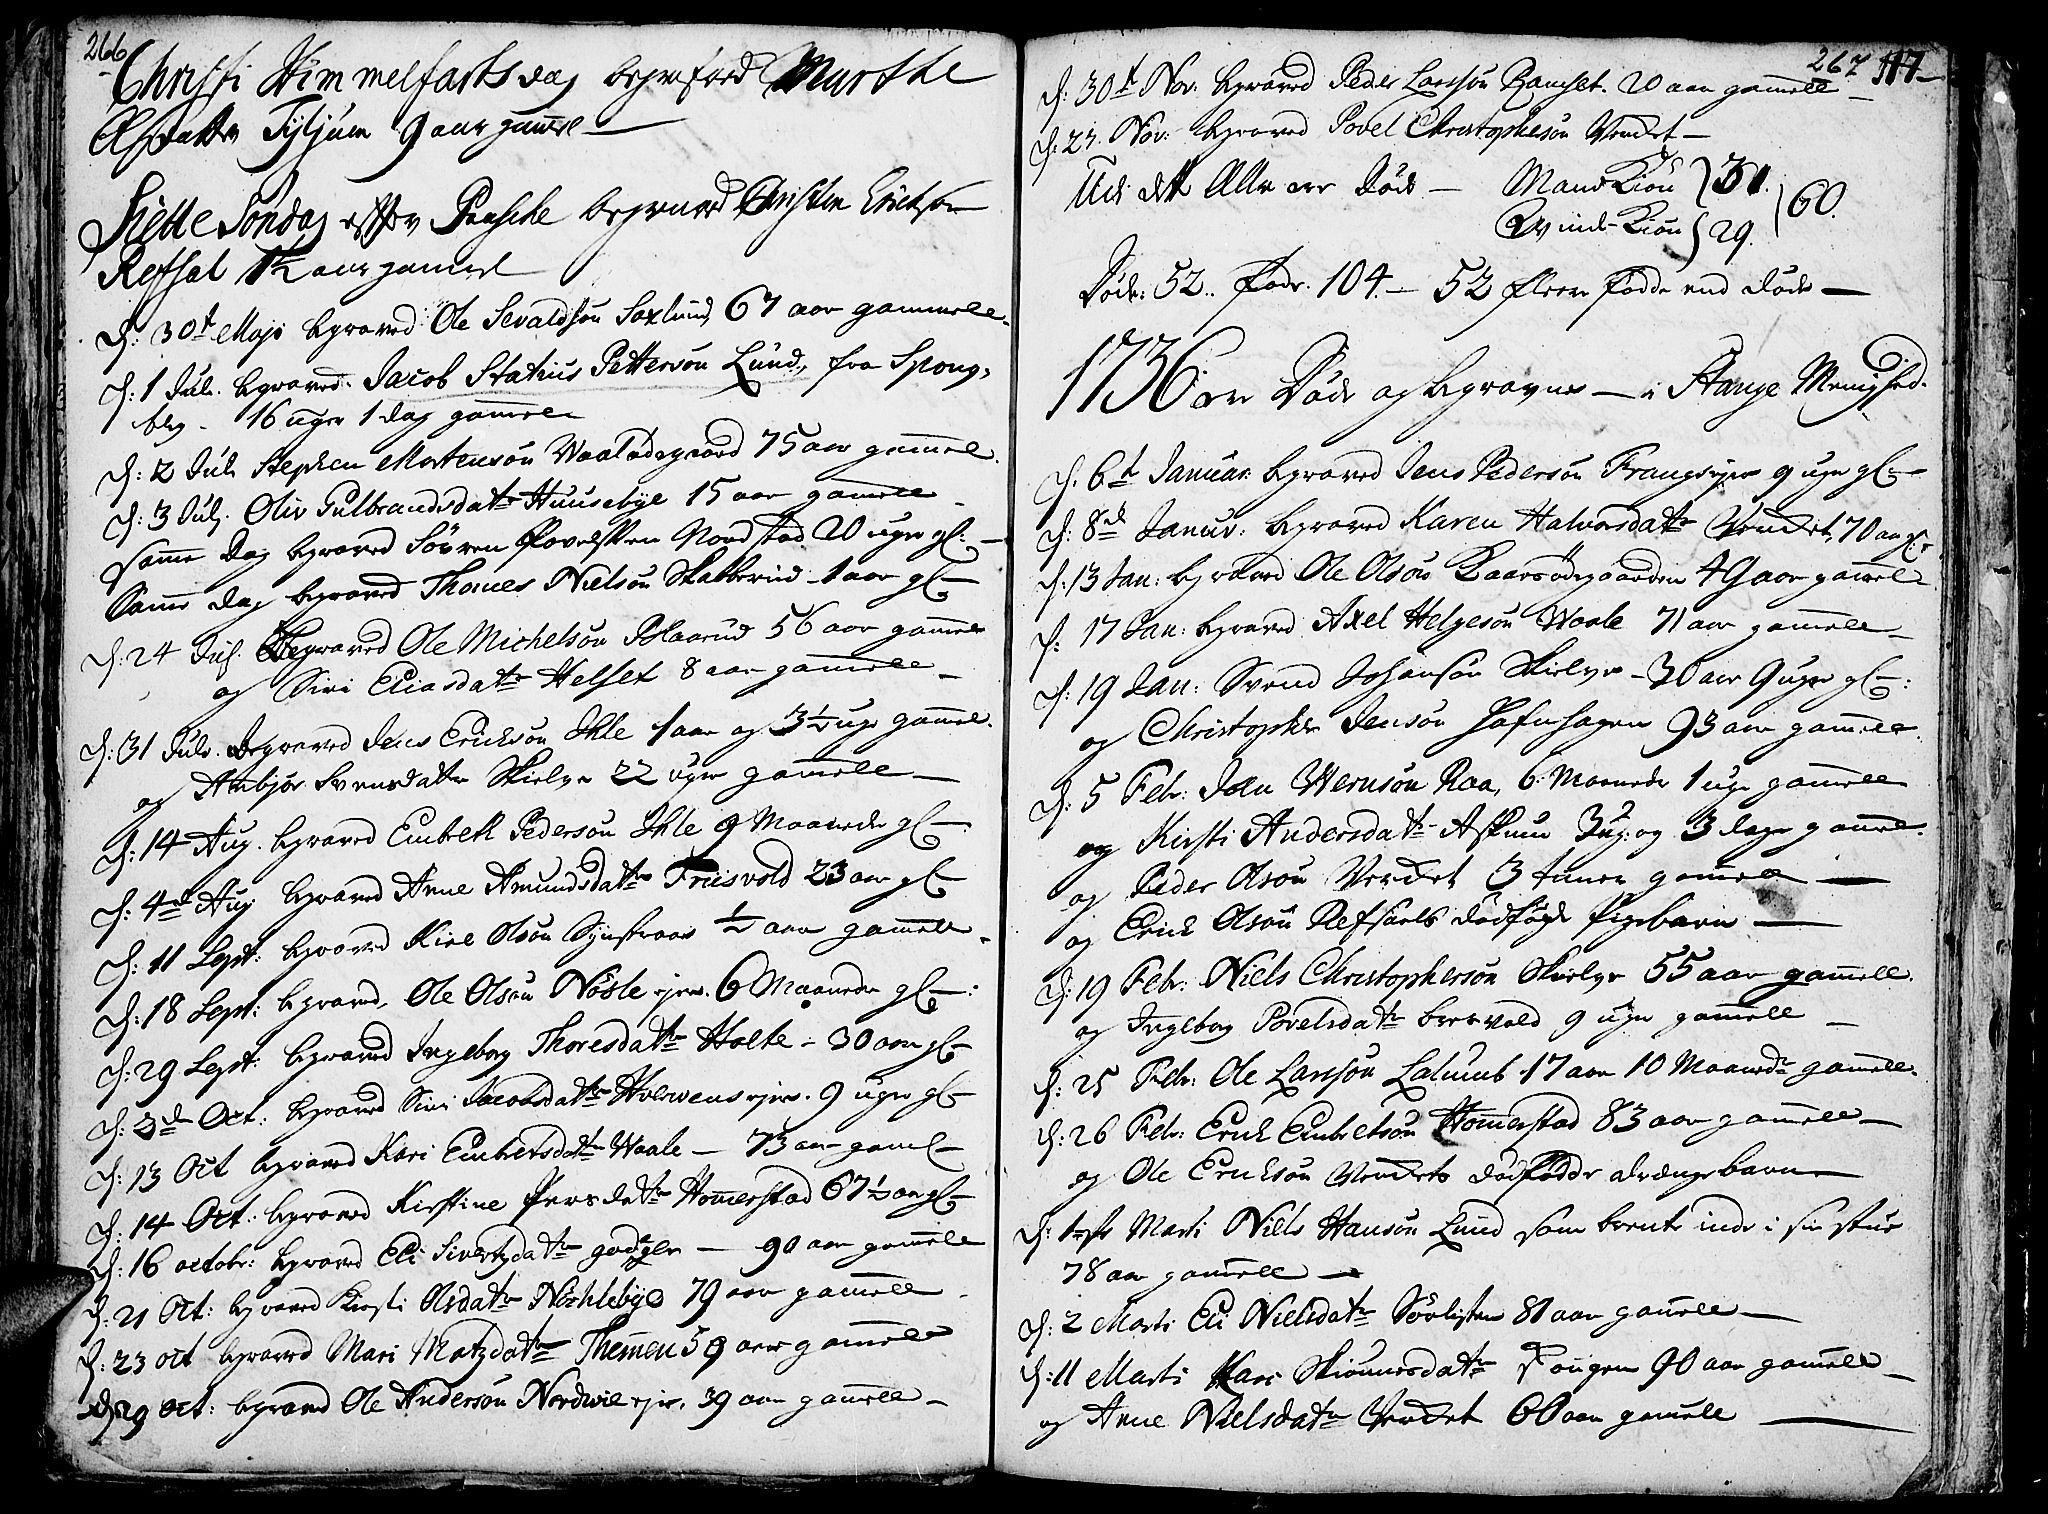 266
Christi Himmelfarts dag begrafved Marthe
Olsdatter 9 aar gamel
Siette Søndag efter Paaske begraved Christen Erickson
Refsal 1½ aar gamel
d: 30t Maji begraved Ole Sevaldsøn Saxlund 67 aar gammell
d: 1 Juli. begraved Jacob Statius Pettersøn Lund, fra Spong-
berg. 16 uger 1 dag gamel
d: 2 Juli Stephen Mortensøn 75 aar gamel
d: 3 Julj. Oliv Gulbrandsdatr Huusebye 15 aar gamell
samme dag begraved Søvren Povelsøn Nordstad 20 uger gl:
Samme dag begraved Thomes Nielsøn Skatterud 1 aar gl
d: 24 Jul. Begraved Ole Michelsøn 56 aar gamel
og Siri Eliasdatr Helset 8 aar gamell
d: 31 Juli. Begraved Jens Ericksøn Ihle 1 aar og 3½ uge gamel.
og Anbjør Svensdatr Skielve 22 uger gamell
d: 14 Aug. begraved Embrett Pedersøn Ihle 9 Maaneder gl
d: 4de Aug begraved Anne Amundsdatr Friisvold 23 aar gl
d: 11 Sept: begraved Olsøn ½ aar gamell
d: 18 Sept: begraved, Ole Olsøn Nøsle ejer. 6 Maaneder gl:
d: 29 Sept: begraved Ingeborg Thoresdatr Holte - 30 aar gl
d: 3de Oct: begraved Siri Jacobsdatr ejer. 9 uger gl
d: 13 Oct begraved Kari Embretsdatr Waale - 73 aar gamel
d: 14 Oct: begraved Kirstine Peersdatr Homerstad 67½ aar gl
d: 16 octobr: begraved Eli Sivertzdatr - 90 aar gamell
d: 21 Oct: begraved Kirsti Olsdatr Nøchlebye 79 aar gamell
d: 23 oct begraved Mari Matzdatr Themen 59 aar gamell
d: 29 oct: begraved Ole Andersøn Nordwie ejer, 39 aar gamell
267 117
d: 30t Nov: begraved Peder Larssøn Ramset. 20 aar gamell
d: 23 Nov: begraved Povel Christophersøn Vendet
Udi dett Aar ere døde - Mandkiøn } 31. } 60.
Qvinde-Kiøn } 29.
Døde: 52.. Fødde. 104. - 52 fleere fødde end døde
1736 ere Døde og begravne - i Stange Menighed.
d. 6t Januar: begraved Jens Pedersøn 9 uger gl
d: 8de Januar: begraved Karen Halvorsdatr Vendet, 70 aar gl:
d: 13 Jan: begraved Ole Olsøn 49 aar gamel
d: 17 Jan: begraved Axel Helgesøn Waale 71 aar gamell
d: 19 Jan: Svend Johansøn Skielve - 30 aar 9 uger gl:
og Christopher Jensøn Hafnhagen 93 aar gamell
d: 5 Febr: Jøen Wernsøn Raa, 6 Maaneder 1 uge gamell
og Kirsti Andersdatr Askum 3 ug: og 3 dage gamel.
og Peder Olsøn Vendet 3 timer gamell
og Erick Olsøn Refsals dødfødde Pigebarn
d: 19 Febr: Niels Christophersøn Skielve 55 aar gamell
og Ingeborg Povelsdatr 9 uger gamell
d: 25 Febr: Ole Larssøn Lalums 17 aar 10 Maaneder gamell
d: 26 Febr: Erick Embretsøn Homerstad 83 aar gamell
og Ole Ericksøn Vendets dødfødde drængebarn
d: 1ste Marti Niels Hansøn Lund som brente inde i sin stue
78 aar gamell
d: 2 Marti Eli Nielsdatr Sørlisten 81 aar gamell
d: 11 Marti Kari 90 aar gamell
og Anne Nielsdatr Vendet 60 aar gamell